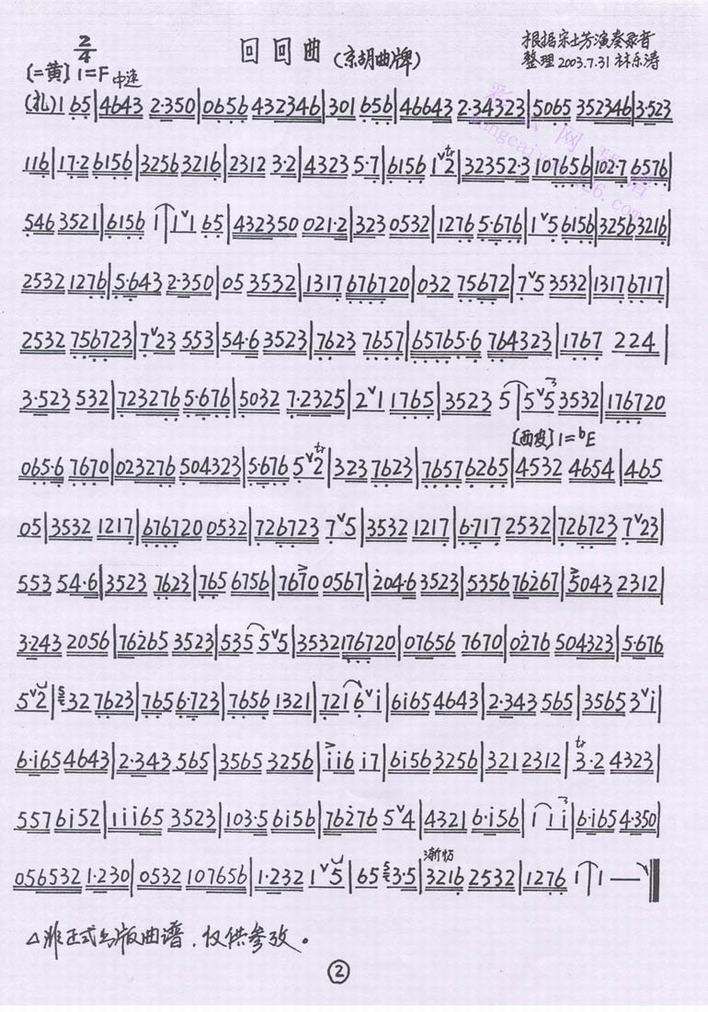 2/4
回回曲(京胡曲牌)
根据宋士芳演奏录音
整理 2003.7.31 林东涛
[二黄] 1=F 中速
(扎)1 65|4643 2·350|0656 432346|301 656|46643 2·34323|5065 352346|3·523
116|17·2 6156|3256 3216|2312 3·2|4323 5·7|6156 1ˇ2|32352·3 107656|102·7 6576|
546 3521|6156 1|1ˇ1 65|432350 021·2|323 0532|1276 5·676|1ˇ5 6156|3256 3216|
2532 1276|5·643 2·350|05 3532|1317 676720|032 75672|7ˇ5 3532|1317 6717|
2532 756723|7ˇ23 553|54·6 3523|7623 7657|65765·6 764323|1767 224|
3·523 532|723276 5·676|5032 7·2325|2ˇ1 1765|3523 5|5ˇ5 3532|176720
[西皮] 1=bE
065·6 7670|023276 504323|5·676 5ˇ2|323 7623|7657 6265|4532 4654|465
05|3532 1217|676720 0532|726723 7ˇ5|3532 1217|6·717 2532|726723 7ˇ23|
553 54·6|3523 7623|765 6756|7670 0567|204·6 3523|5356 76267|5043 2312|
3·243 2056|76265 3523|535 5ˇ5|3532 176720|07656 7670|0276 504323|5·676
5ˇ2|327623|7656·723|7656 1321|7216ˇi|6i65 4643|2·343 565|3565 3ˇi|
6·i65 4643|2·343 565|3565 3256|ii6 i7|6i56 3256|321 2312|3·2 4323|
557 6i52|1ii65 3523|103·5 6i56|76276 5ˇ4|4321 6·i56|1 1i|6·i65 4·350|
渐慢
056532 1·230|0532 107656|1·232 1ˇ5|65 3·5|3216 2532|1276 1|1 —‖
△非正式出版曲谱，仅供参改。
②